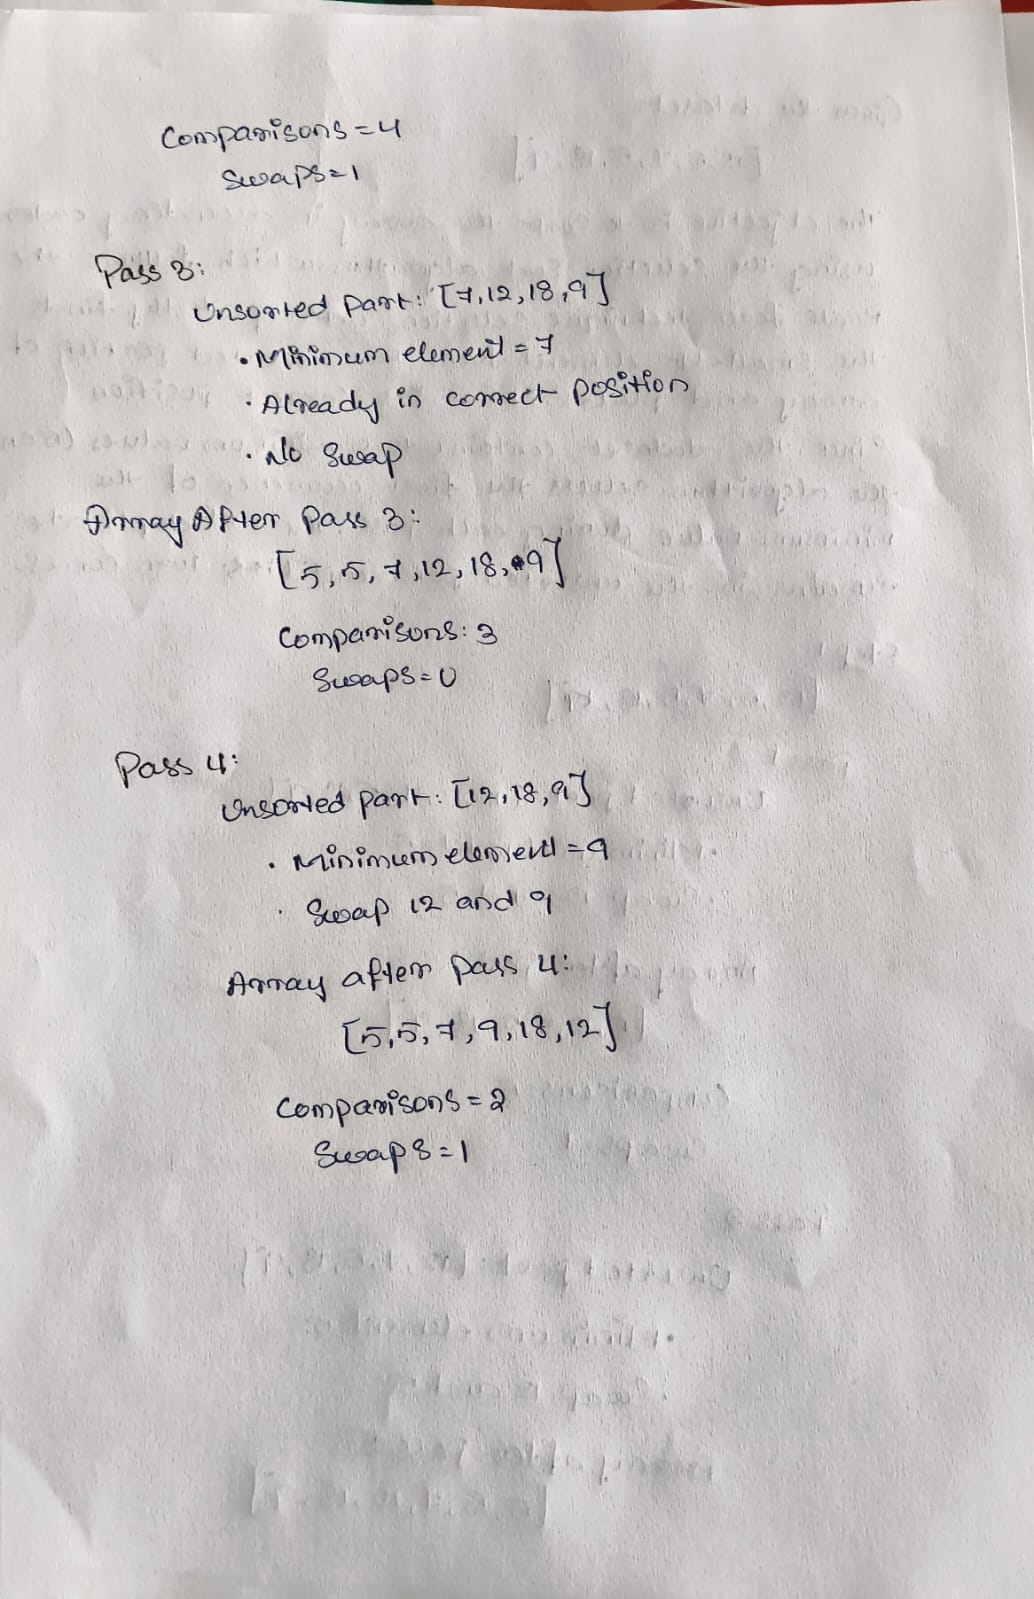 Comparisons = 4
Swaps = 1
Pass 3:
Unsorted Part: [7,12,18,9]
• Minimum element = 7
• Already in correct position
• No Swap
Array After Pass 3:
[5,5,7,12,18,9]
Comparisons: 3
Swaps = 0
Pass 4:
Unsorted part: [12,18,9]
• Minimum element = 9
• Swap 12 and 9
Array after pass 4:
[5,5,7,9,18,12]
Comparisons = 2
Swaps = 1